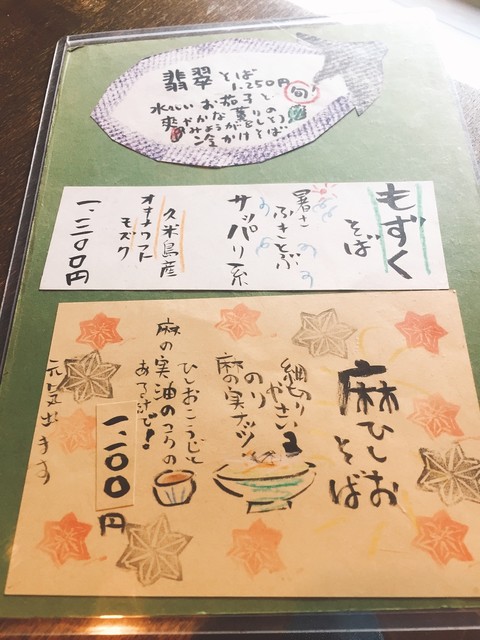 翡翠そば
1.250円
旬!
水々しいお茄子と
爽やかな薫りの
みょうがをのせ
冷かけそば
もずく
そば
暑さ
ふきとぶ
サッパリ系
久米島産
オキナワフト
モズク
一、三〇〇円
麻ひしお
そば
細切り
やさい
のり
麻の実ナッツ
ひしおこうじと
麻の実油のコクの
ある汁で!
一、二〇〇円
元気出ます